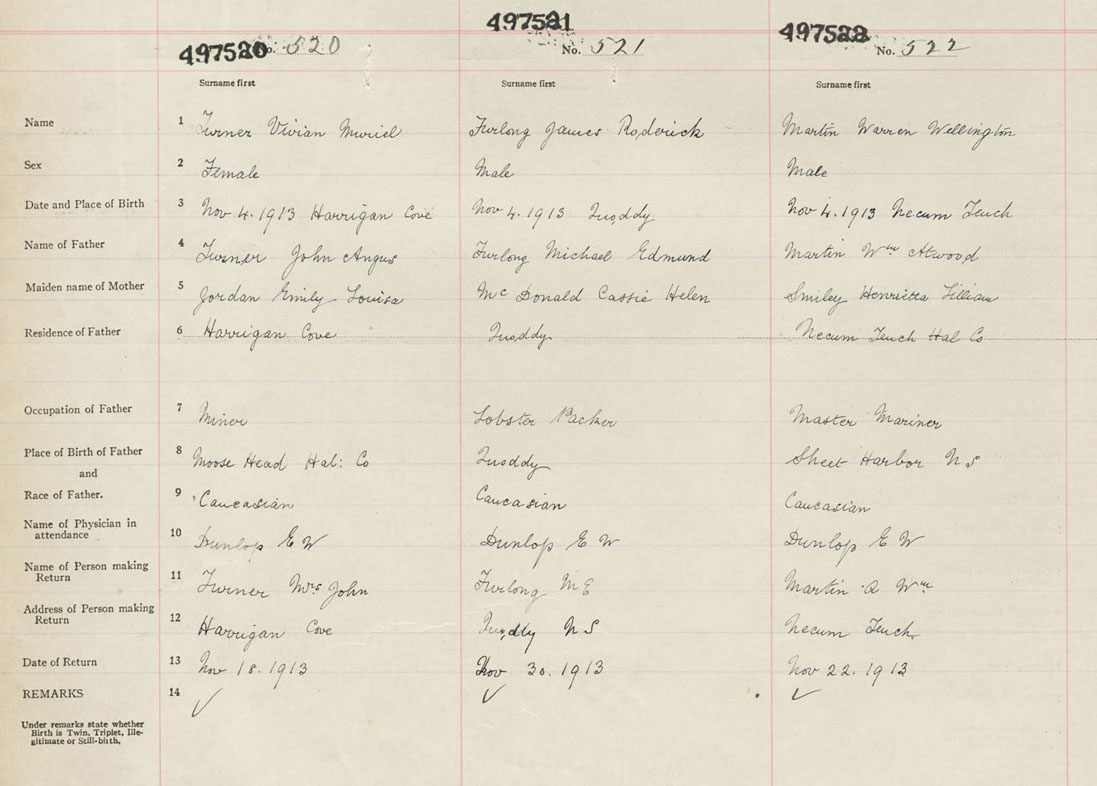 497520 No. 520 497521 No. 521 497522 No. 522
Surname first Surname first Surname first
Name 1 Turner Vivian Muriel Furlong James Roderick Martin Warren Wellington
Sex 2 Female Male Male
Date and Place of Birth 3 Nov 4. 1913 Harrigan Cove Nov 4. 1913 Quoddy Nov 4. 1913 Necum Teuch
Name of Father 4 Turner John Angus Furlong Michael Edmund Martin Wm Atwood
Maiden name of Mother 5 Jordan Emily Louisa McDonald Cassie Helen Smiley Henrietta Lillian
Residence of Father 6 Harrigan Cove Quoddy Necum Teuch Hal Co
Occupation of Father 7 Miner Lobster Packer Master Mariner
Place of Birth of Father 8 Moose Head Hal: Co Quoddy Sheet Harbor N S
and
Race of Father. 9 Caucasian Caucasian Caucasian
Name of Physician in
attendance 10 Dunlop E W Dunlop E W Dunlop E W
Name of Person making
Return 11 Turner Mrs John Furlong M E Martin A Wm
Address of Person making
Return 12 Harrigan Cove Quoddy N S Necum Teuch
Date of Return 13 Nov 18. 1913 Nov 30. 1913 Nov 22. 1913
REMARKS 14 ✓ ✓ ✓
Under remarks state whether
Birth is Twin, Triplet, Ille-
gitimate or Still-birth.